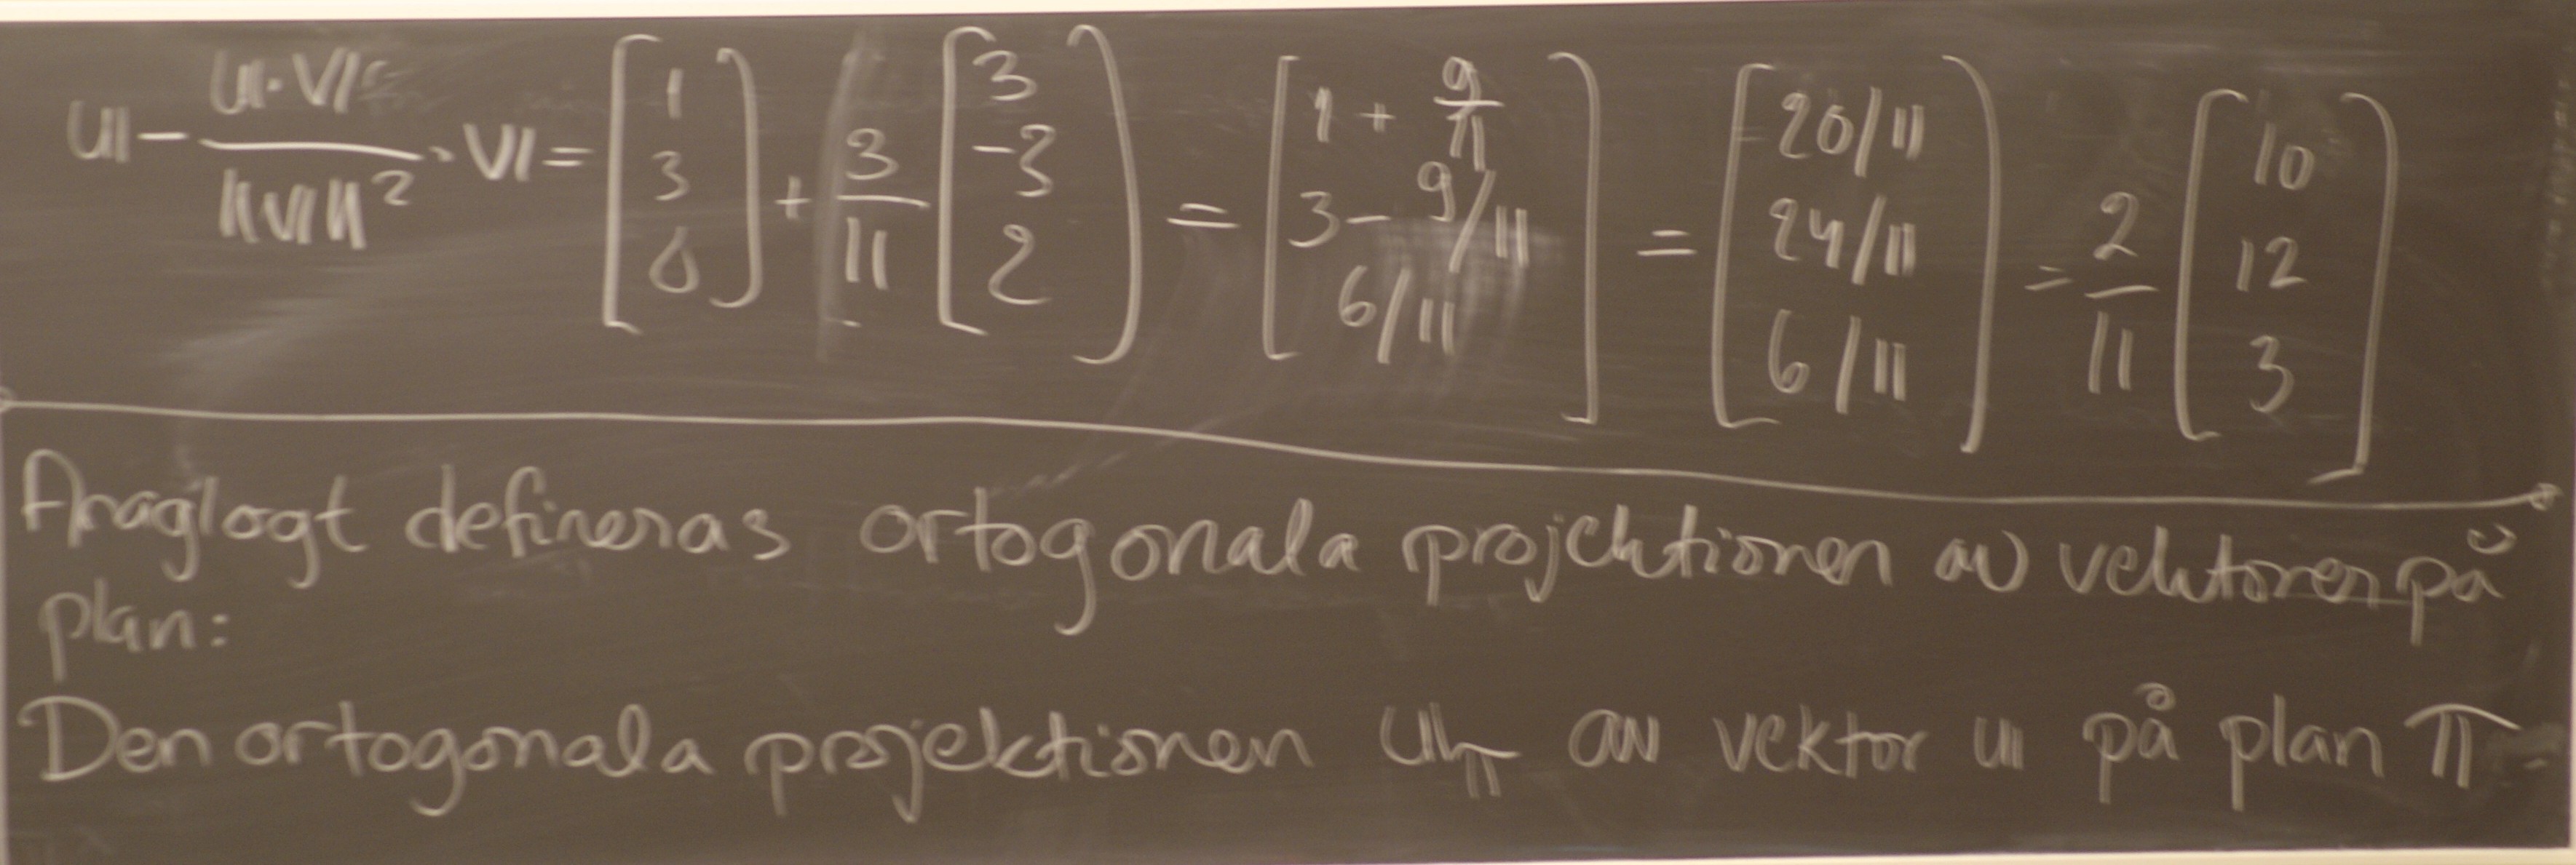 𝕦 − (𝕦·𝕧)/‖𝕧‖² · 𝕧 = [1 3 0] + 3/11 [3 -3 2] = [1 + 9/11 3 − 9/11 6/11] = [20/11 24/11 6/11] = 2/11 [10 12 3]
Analogt defineras ortogonala projektionen av vektorer på
plan:
Den ortogonala projektionen 𝕦_π av vektor 𝕦 på plan π